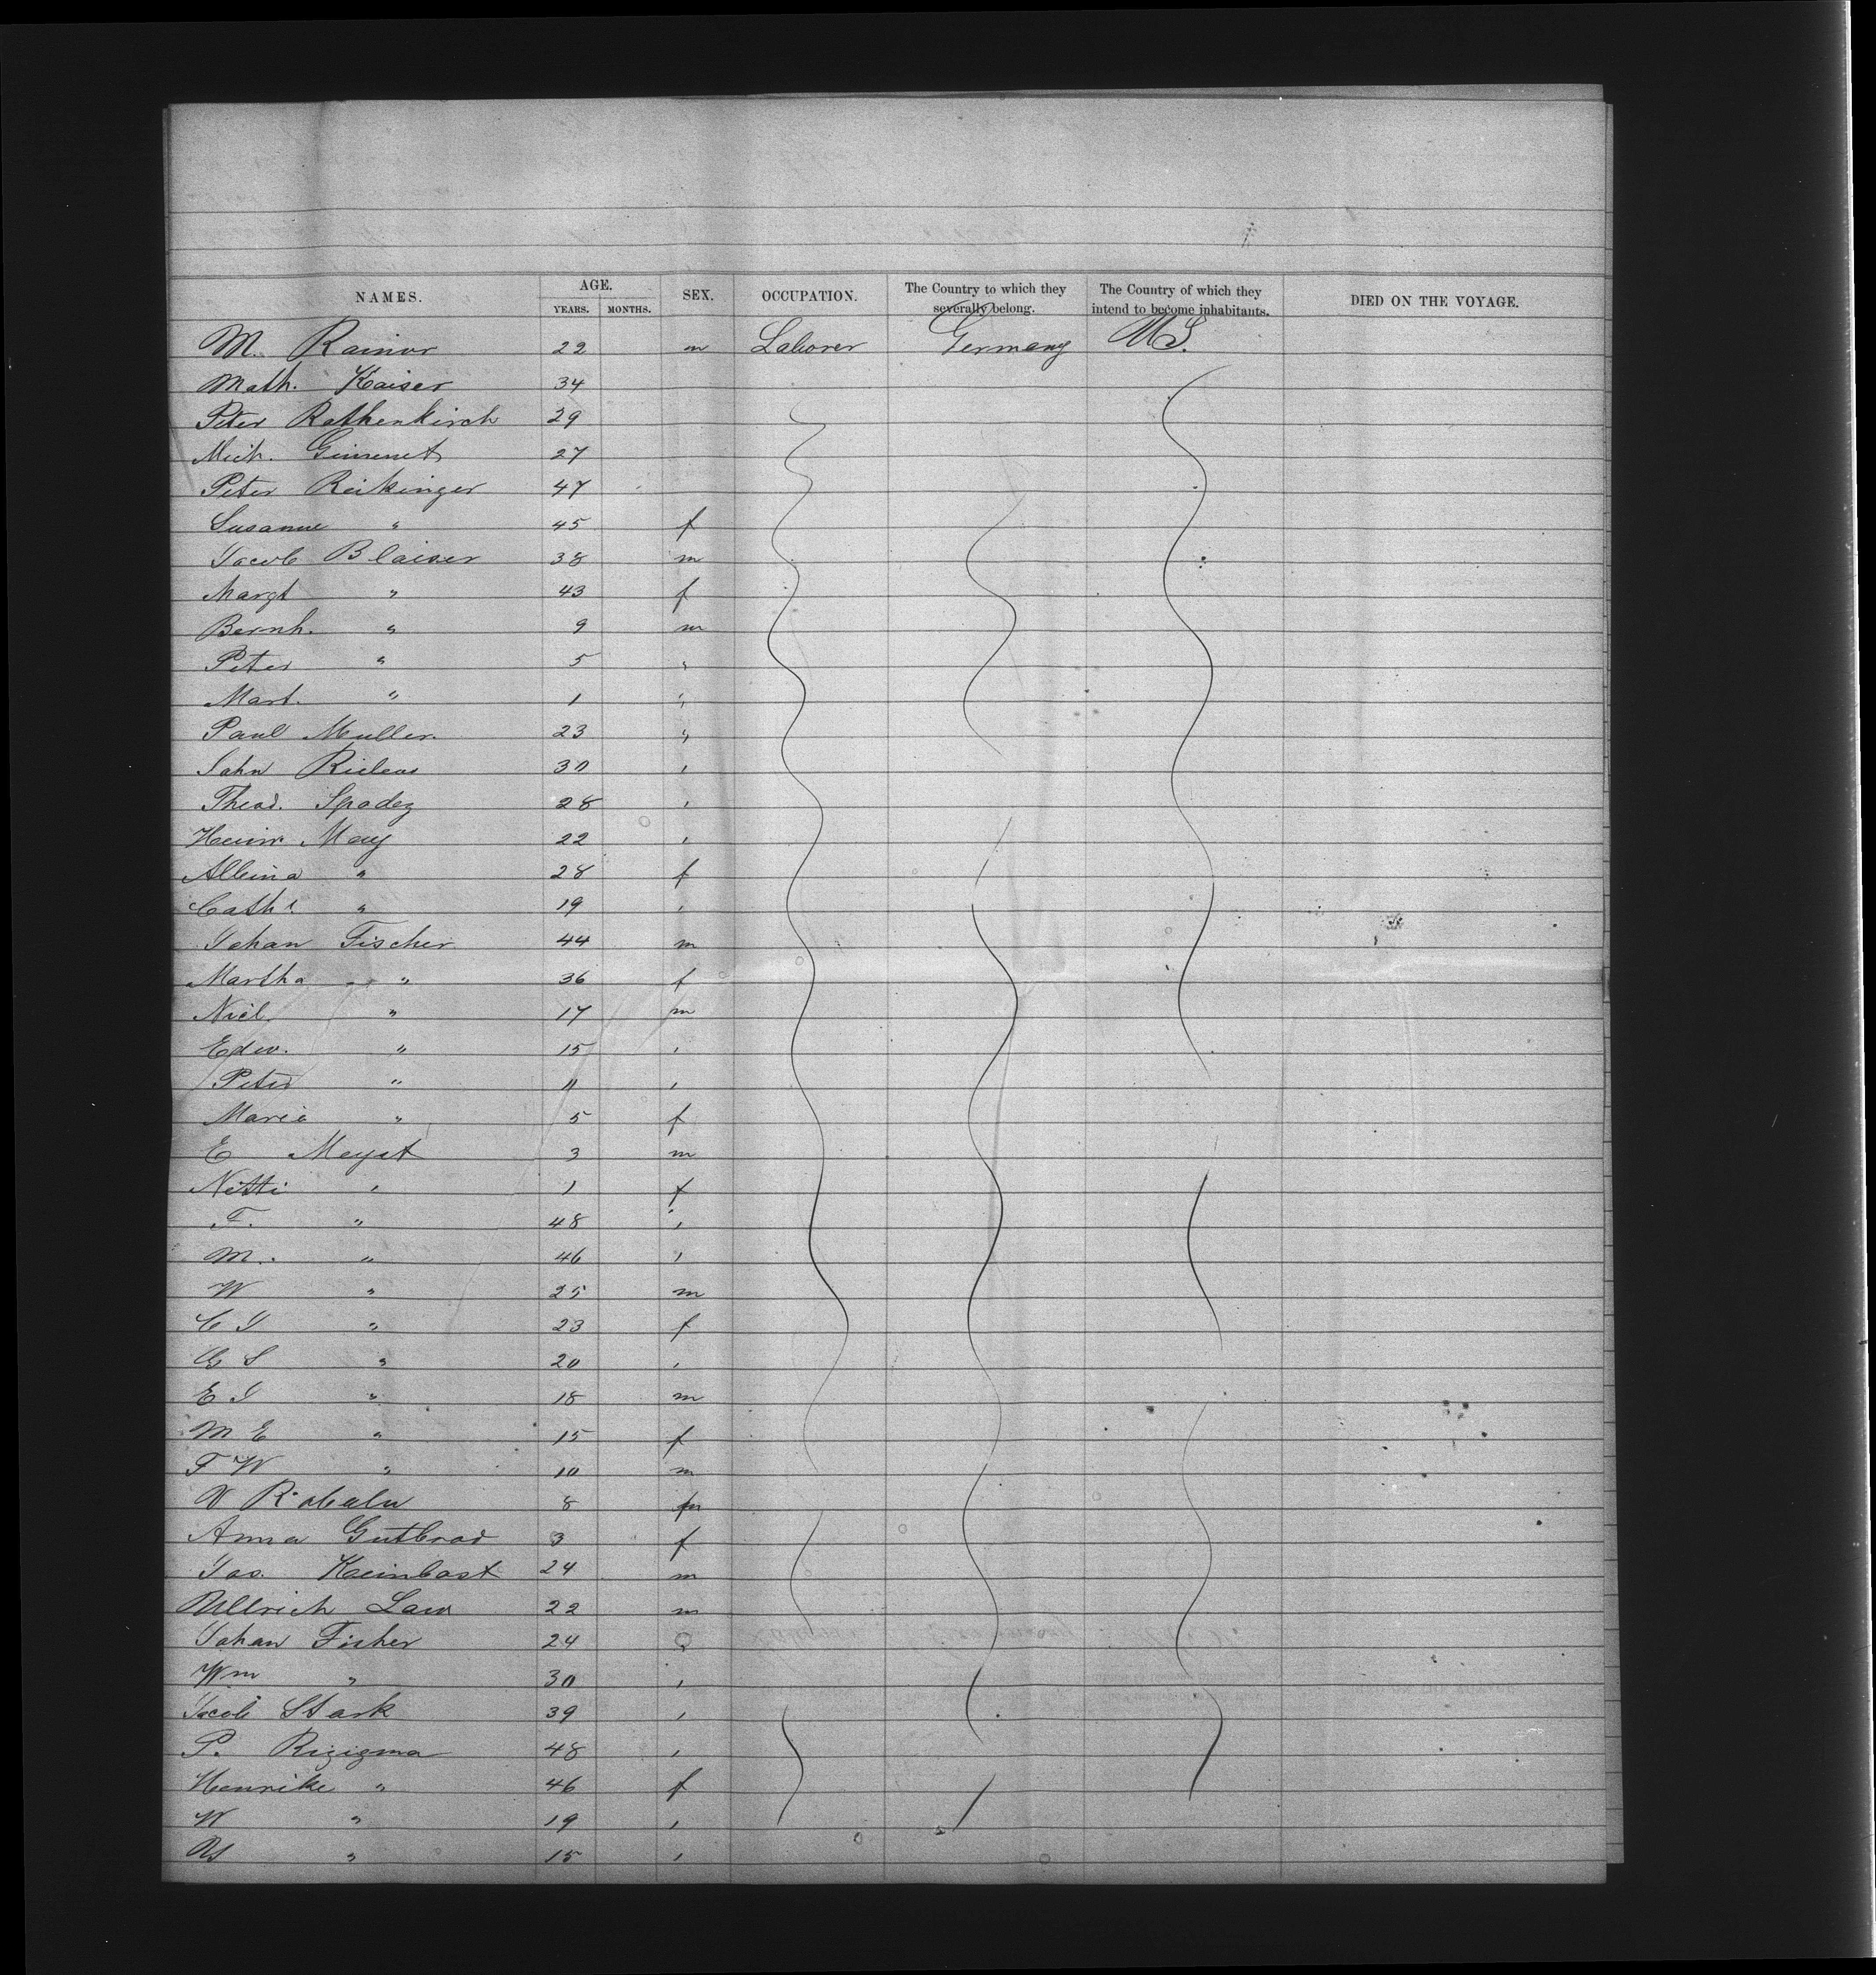 NAMES. AGE. YEARS. MONTHS. SEX. OCCUPATION. The Country to which they severally belong. The Country of which they intend to become inhabitants. DIED ON THE VOYAGE.
M. Rainor 22 m Laborer Germany U.S.
Math. Kaiser 34
Peter Rothenkirch 29
Mich. 27
Peter Reikinger 47
Susanne " 45 f
Jacob Blaiser 38 m
Margt " 43 f
Bernh. " 9 m
Peter " 5 "
Mart. " 1 "
Paul Muller. 23 "
John 30 "
Theod. Spadez 28 "
Heinr May 22 "
Albina " 28 f
Cath. " 19 "
Johan Fischer 44 m
Martha " 36 f
Nicl. " 17 m
Edw. " 15 "
Peter " 11 "
Maria " 5 f
E Meyst 3 m
Netti " 1 f
F. " 48 "
M. " 46 "
W " 25 m
C J " 23 f
G S " 20 "
E J " 18 m
M E " 15 f
F W " 10 m
V 8 m
Anna Gutbrod 3 f
Jos. Keimbast 24 m
Ullrich Law 22 m
Johan Fisher 24
Wm " 30 "
Jacob Stark 39 "
P. Rizigma 48 "
Henrike " 46 f
W " 19 "
" 15 "